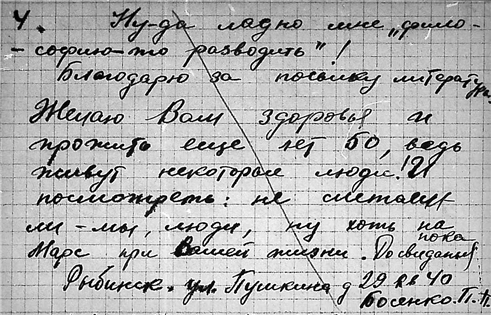 4. Ну-да ладно мне „фило-
-софию-то разводить"!
Благодарю за посылку литературы.
Желаю Вам здоровья и
прожить еще лет 50, ведь
живут некоторые люди! И
посмотреть: не слетаем
ли-мы, люди, ну хоть на
Марс при Вашей жизни. Досвиданья
пока
Рыбинск. ул. Пушкина д 29 кв 40
Босенко. П. П.